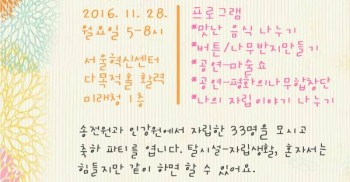 2016. 11. 28.
월요일 5-8시
서울혁신센터
다목적홀 활력
미래청 1층
프로그램
*맛난 음식 나누기
*버튼/나무반지만들기
*공연-마술쇼
*공연-평화의나무합창단
*나의 자립이야기 나누기
송전원과 인강원에서 자립한 33명을 모시고
축하 파티를 엽니다. 탈시설-자립생활, 혼자서는
힘들지만 같이 하면 할 수 있어요.